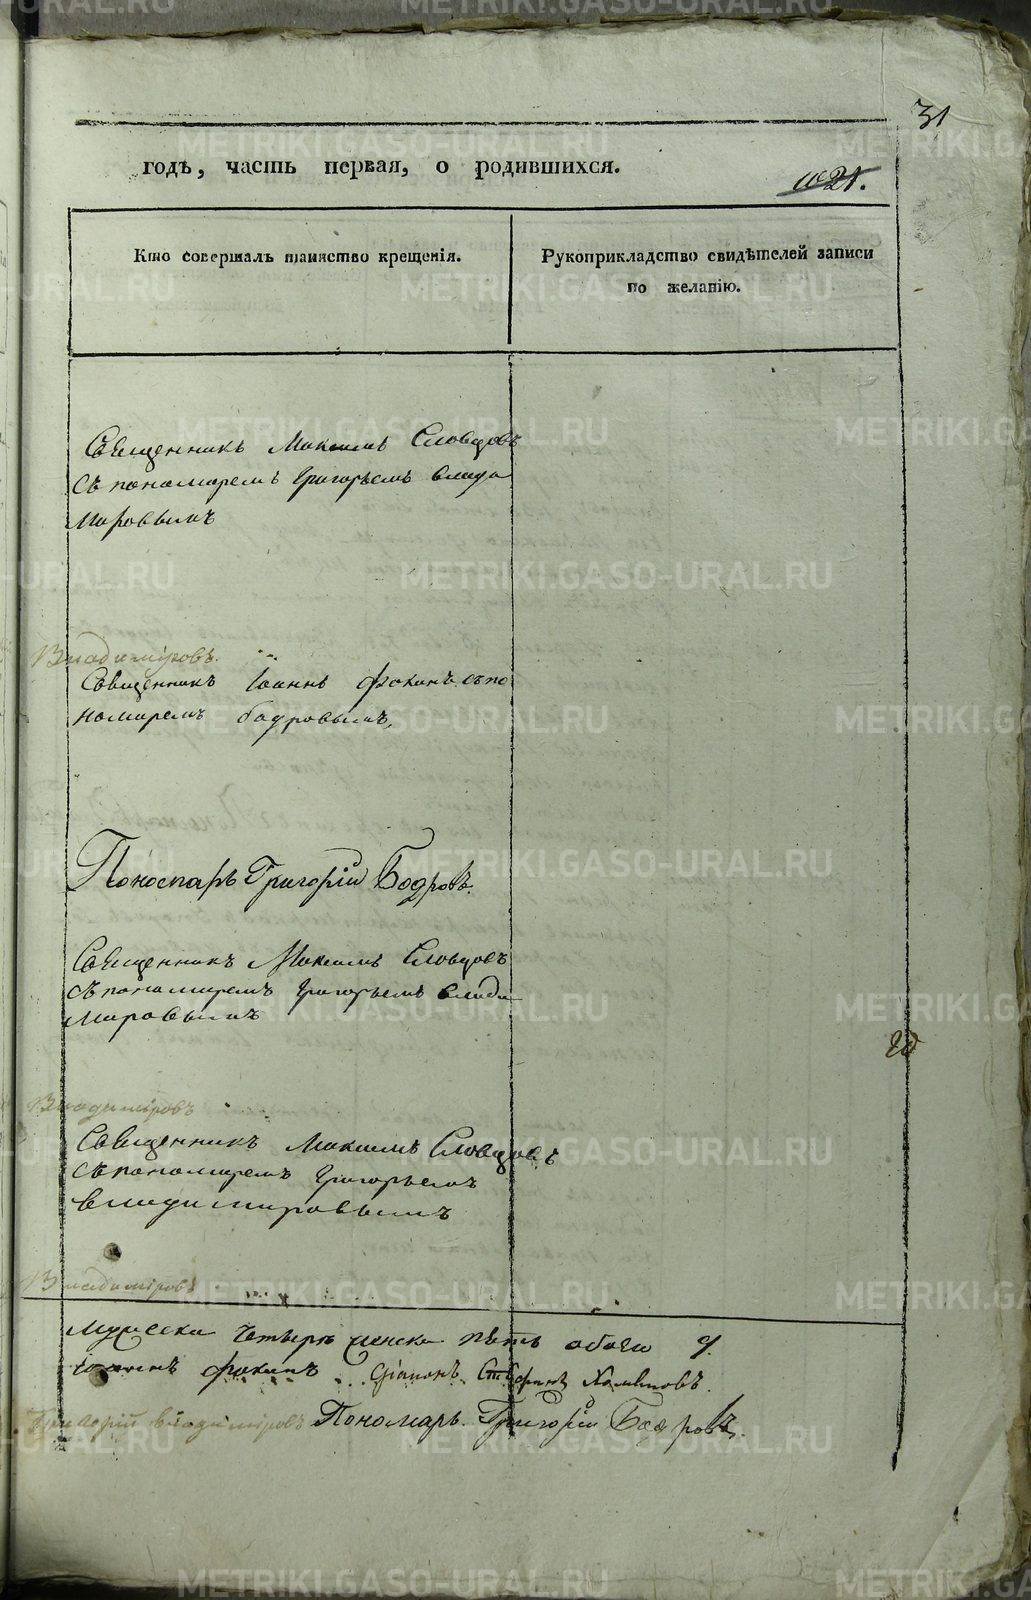 31
годъ, часть первая, о родившихся.
21.
Кто совершалъ таинство крещенія.
Рукоприкладство свидѣтелей записи
по желанію.
Священникъ Максимъ Словцовъ
съ пономаремъ Григорьемъ влади
мировымъ
Владиміровъ.
Священникъ Іоаннъ Фокинъ съ по
номаремъ бодровымъ,
Пономарь Григорій Бодровъ.
Священникъ Максимъ Словцовъ
съ пономаремъ Григорьемъ влади
мировымъ
Владиміровъ
Священникъ Максимъ Словцовъ
съ пономаремъ Григорьемъ
владимировымъ
Владиміровъ
мужеска четыре женска пять обоего 9.
Іоаннъ Фокинъ Діаконъ Стефанъ
Григорій владиміровъ Пономарь. Григорій Бодровъ.
METRIKI.GASO-URAL.RU